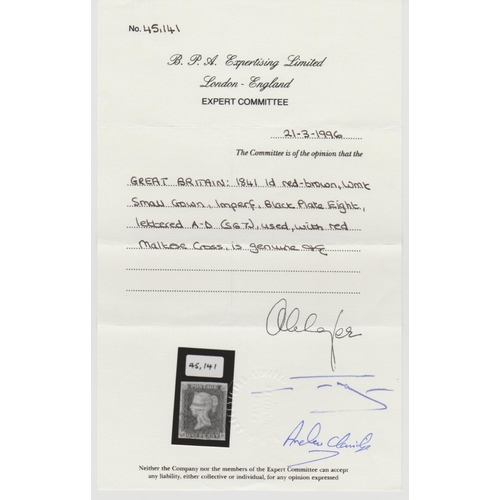 No. 45,141
B. P. A. Expertising Limited
London - England
EXPERT COMMITTEE
21-3-1996
The Committee is of the opinion that the
GREAT BRITAIN: 1841 1d red-brown, Wmk
Small Crown, Imperf, Black Plate Eight,
lettered A-D (SG7), used, with red
Maltese Cross, is genuine
45,141
POSTAGE
ONE PENNY
Neither the Company nor the members of the Expert Committee can accept
any liability, either collective or individual, for any opinion expressed